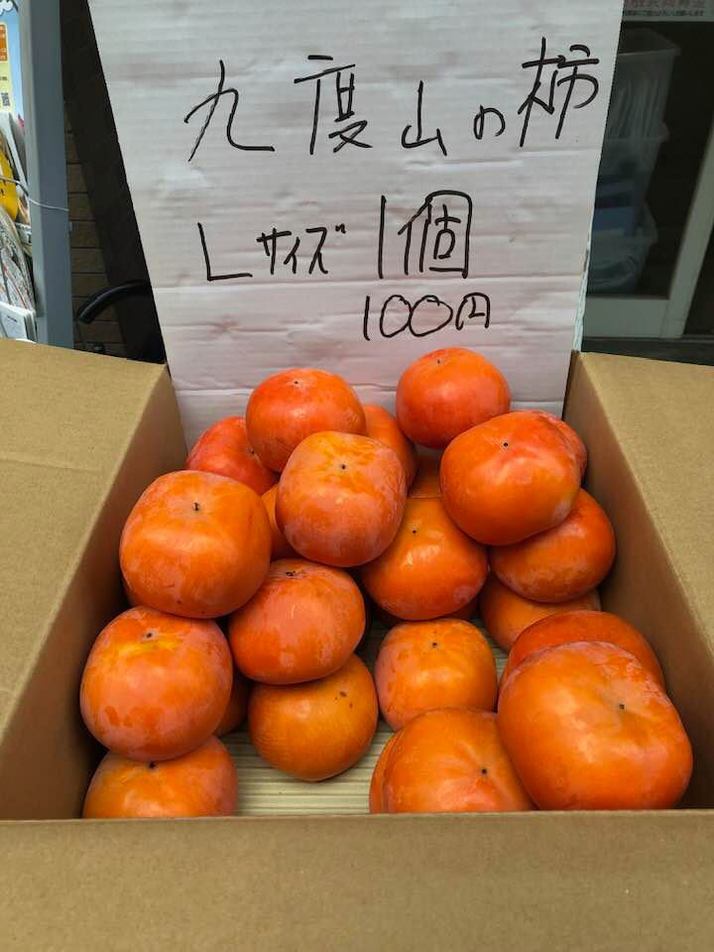 九度山の柿
Lサイズ 1個
100円